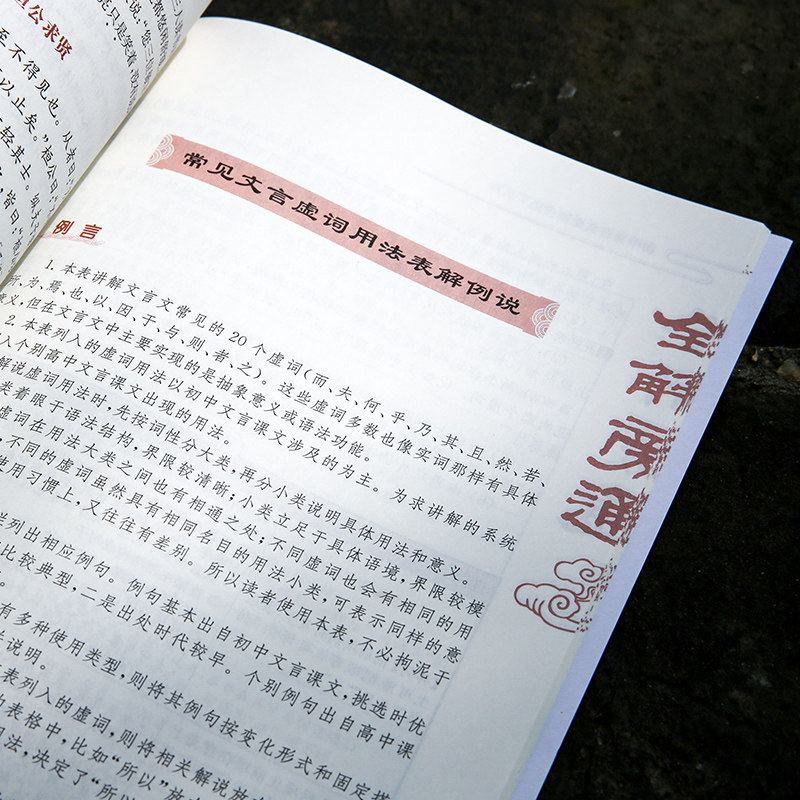 公求贤
至不得见也。从者曰
以止矣。”桓公曰
轻其士。
皆曰
常见文言虚词用法表解例说
例言
1. 本表讲解文言文常见的 20 个虚词(而、夫、何、乎、乃、其、且、然、若、
所、为、焉、也、以、因、于、与、则、者、之)。这些虚词多数也像实词那样有具体
意义,但在文言文中主要实现的是抽象意义或语法功能。
2. 本表列入的虚词用法以初中文言课文涉及的为主。为求讲解的系统
入个别高中文言课文出现的用法。
解说虚词用法时,先按词性分大类,再分小类说明具体用法和意义。
类着眼于语法结构,界限较清晰;小类立足于具体语境,界限较模
虚词在用法大类之间也有相通之处;不同虚词也会有相同的用
,不同的虚词虽然具有相同名目的用法小类,可表示同样的意
使用习惯上,又往往有差别。所以读者使用本表,不必拘泥于
列出相应例句。例句基本出自初中文言课文,挑选时优
比较典型,二是出处时代较早。个别例句出自高中课
有多种使用类型,则将其例句按变化形式和固定搭
说明。
表列入的虚词,则将相关解说放
表格中,比如“所以”放
用法,决定了“所以
全解旁通